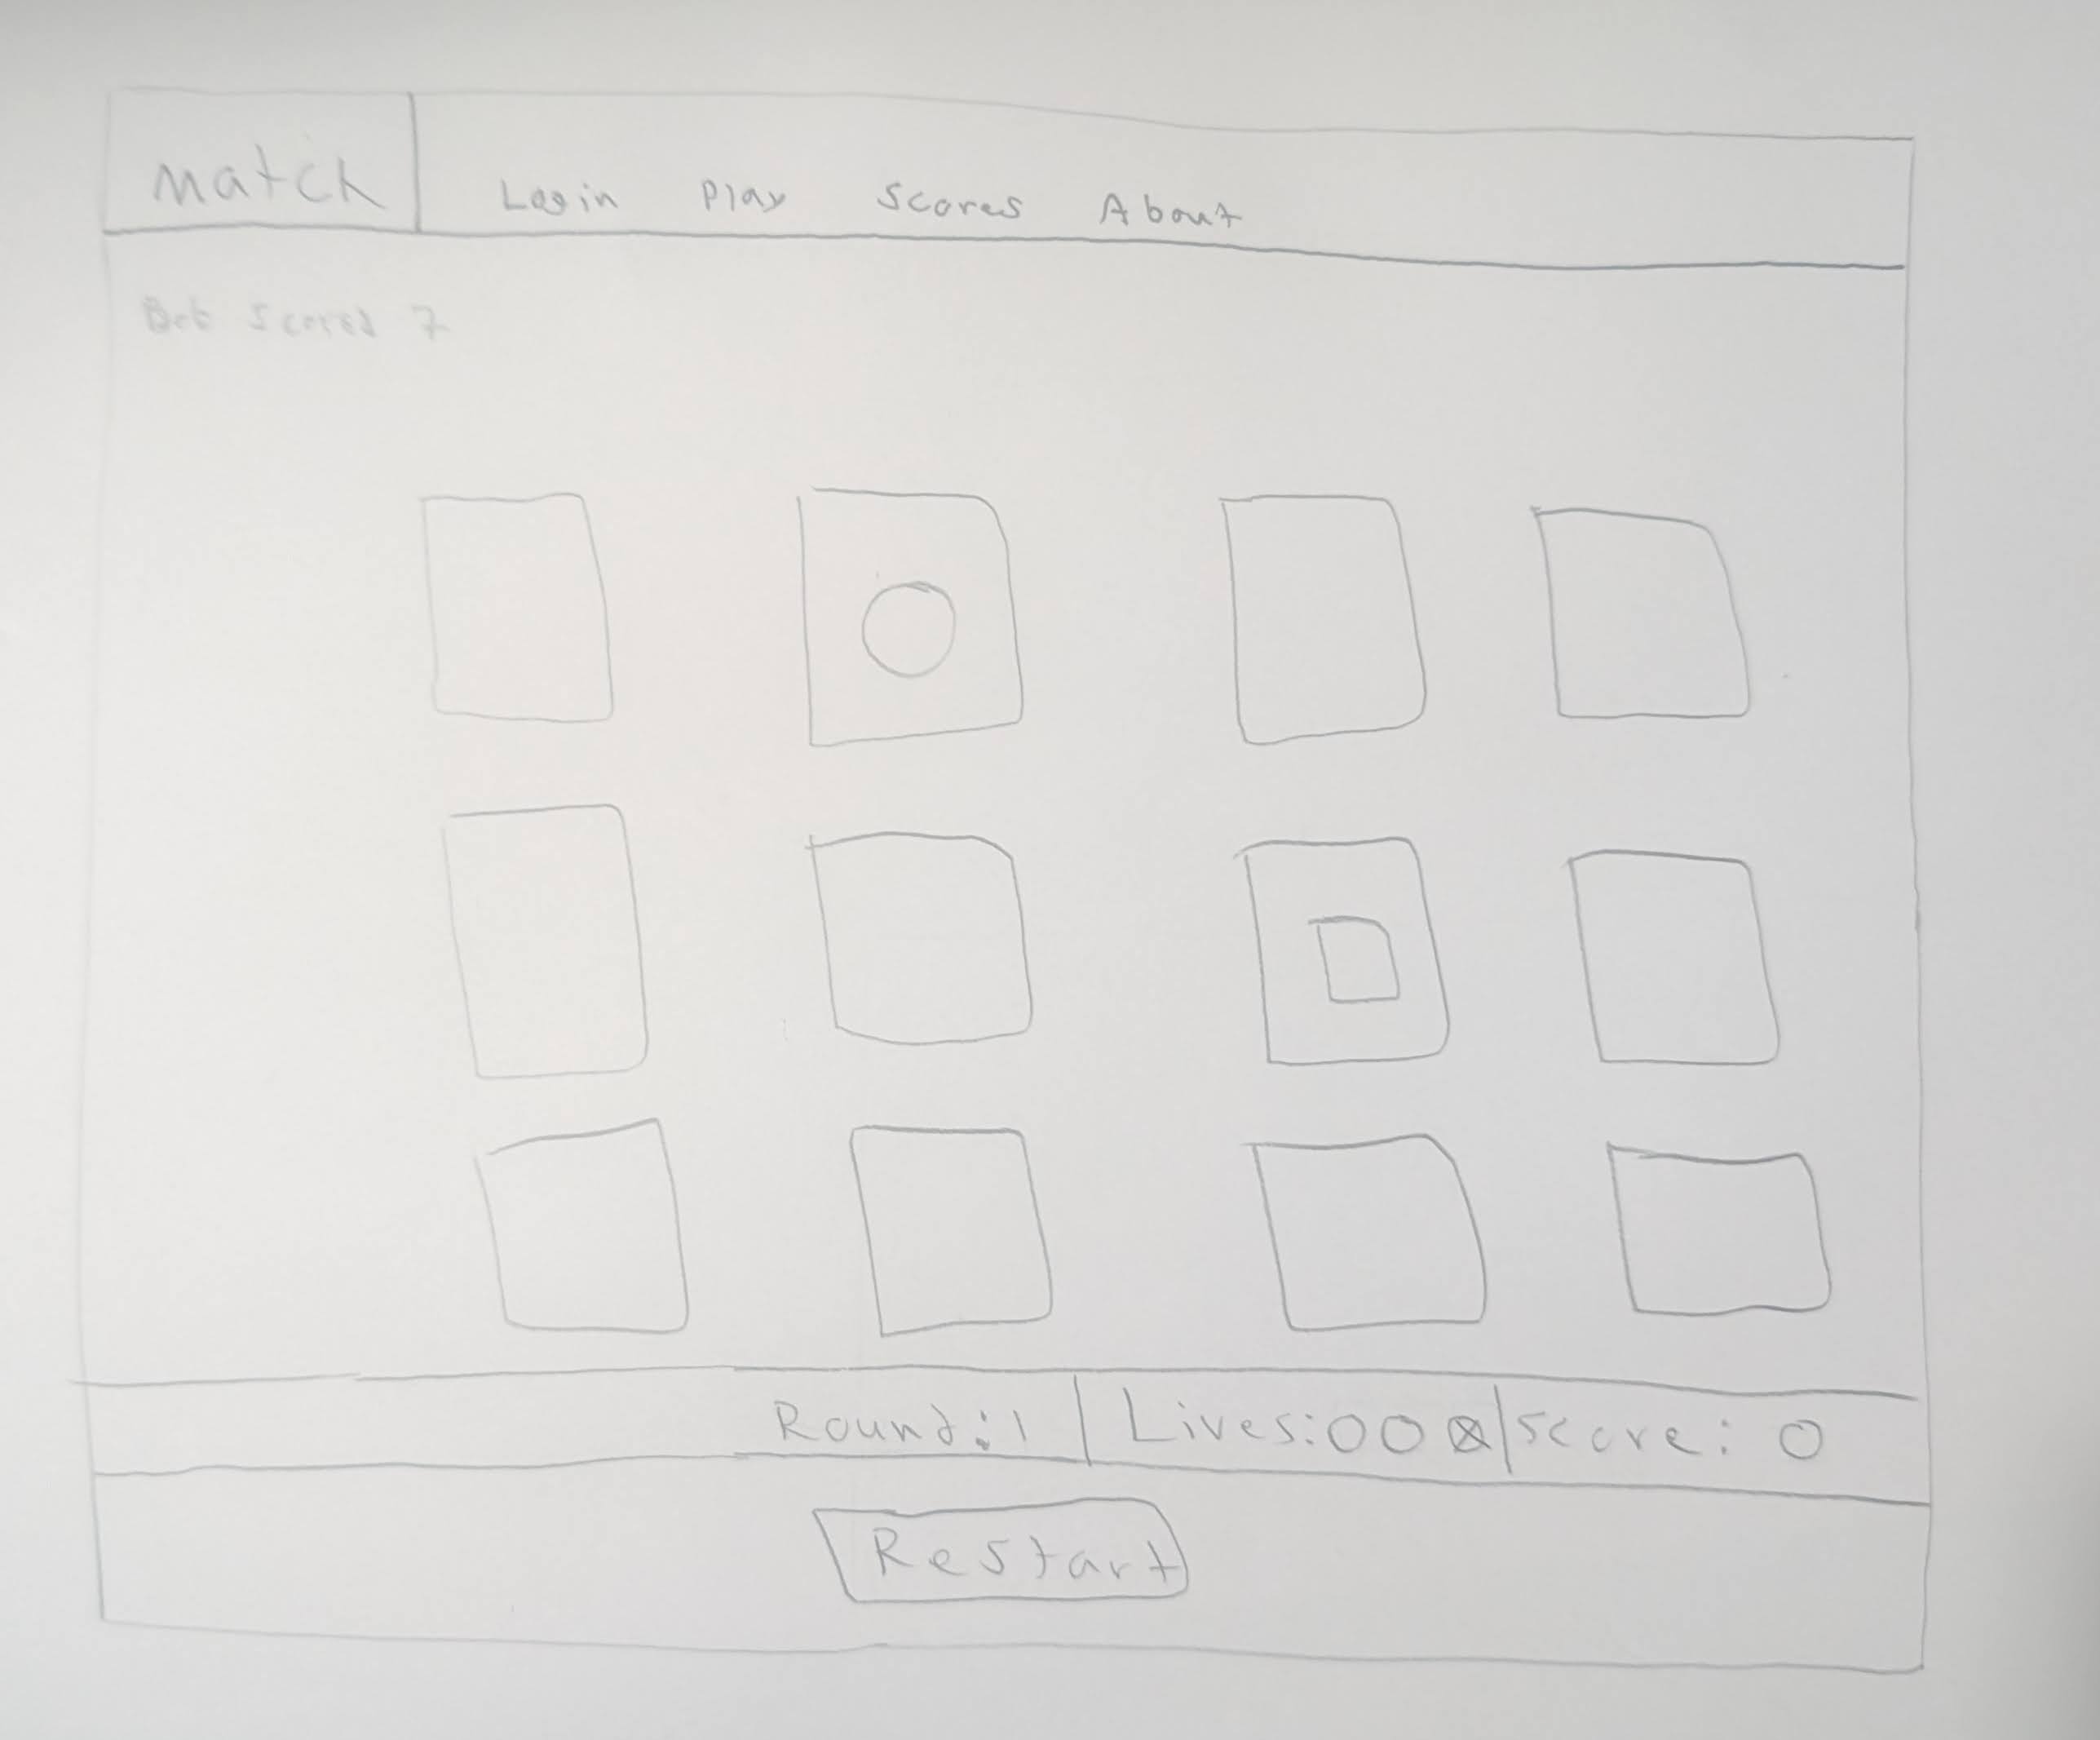 Match Login Play Scores About
Bob Scored 7
Round: 1 | Lives: O O O | Score: 0
Restart